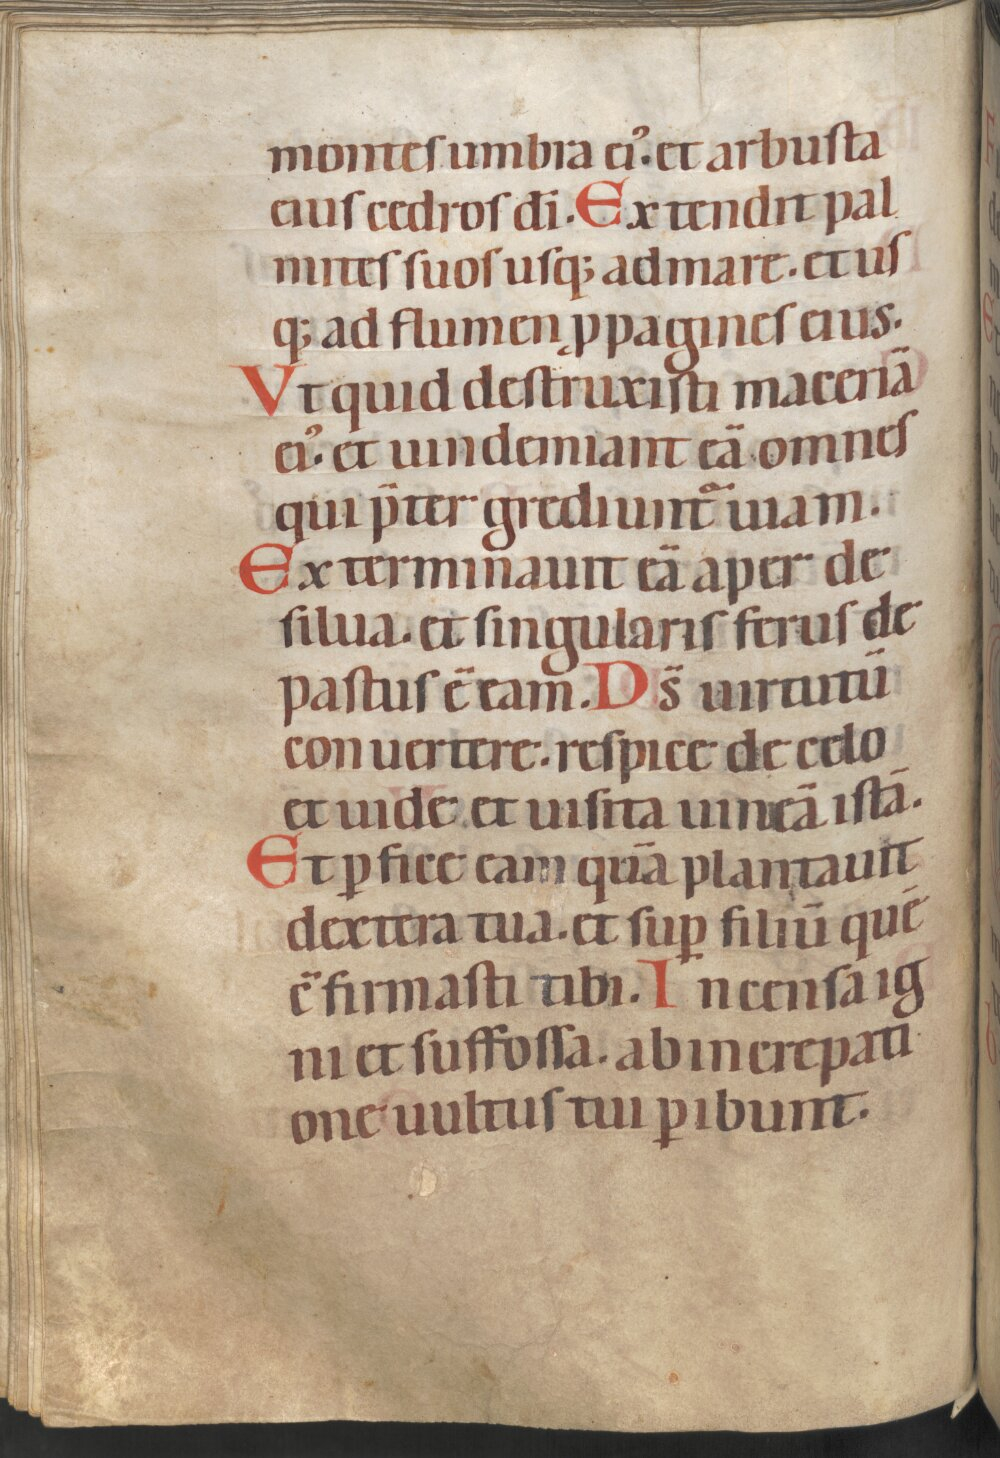 montes umbra ei᾽. et arbusta
eius cedros dī. Extendit pal
mites suos usq; ad mare. et us
q; ad flumen ꝓpagines eius.
Vt quid destruxisti maceriā
ei᾽. et uindemiant eā omnes
qui p̄ter grediunt᷑ uiam.
Exterminauit eā aper de
silua. et singularis ferus de
pastus ē eam. Ds̄ uirtutū
conuertere. respice de celo
et uide. et uisita uineā istā.
Et ꝑfice eam quā plantauit
dextera tua. et suꝑ filiū quē
c̄firmasti tibi. Incensa ig
ni et suffossa. ab increpati
one uultus tui ꝑibunt.